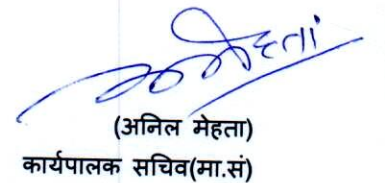 अ मेहता
(अनिल मेहता)
कार्यपालक सचिव(मा.सं)